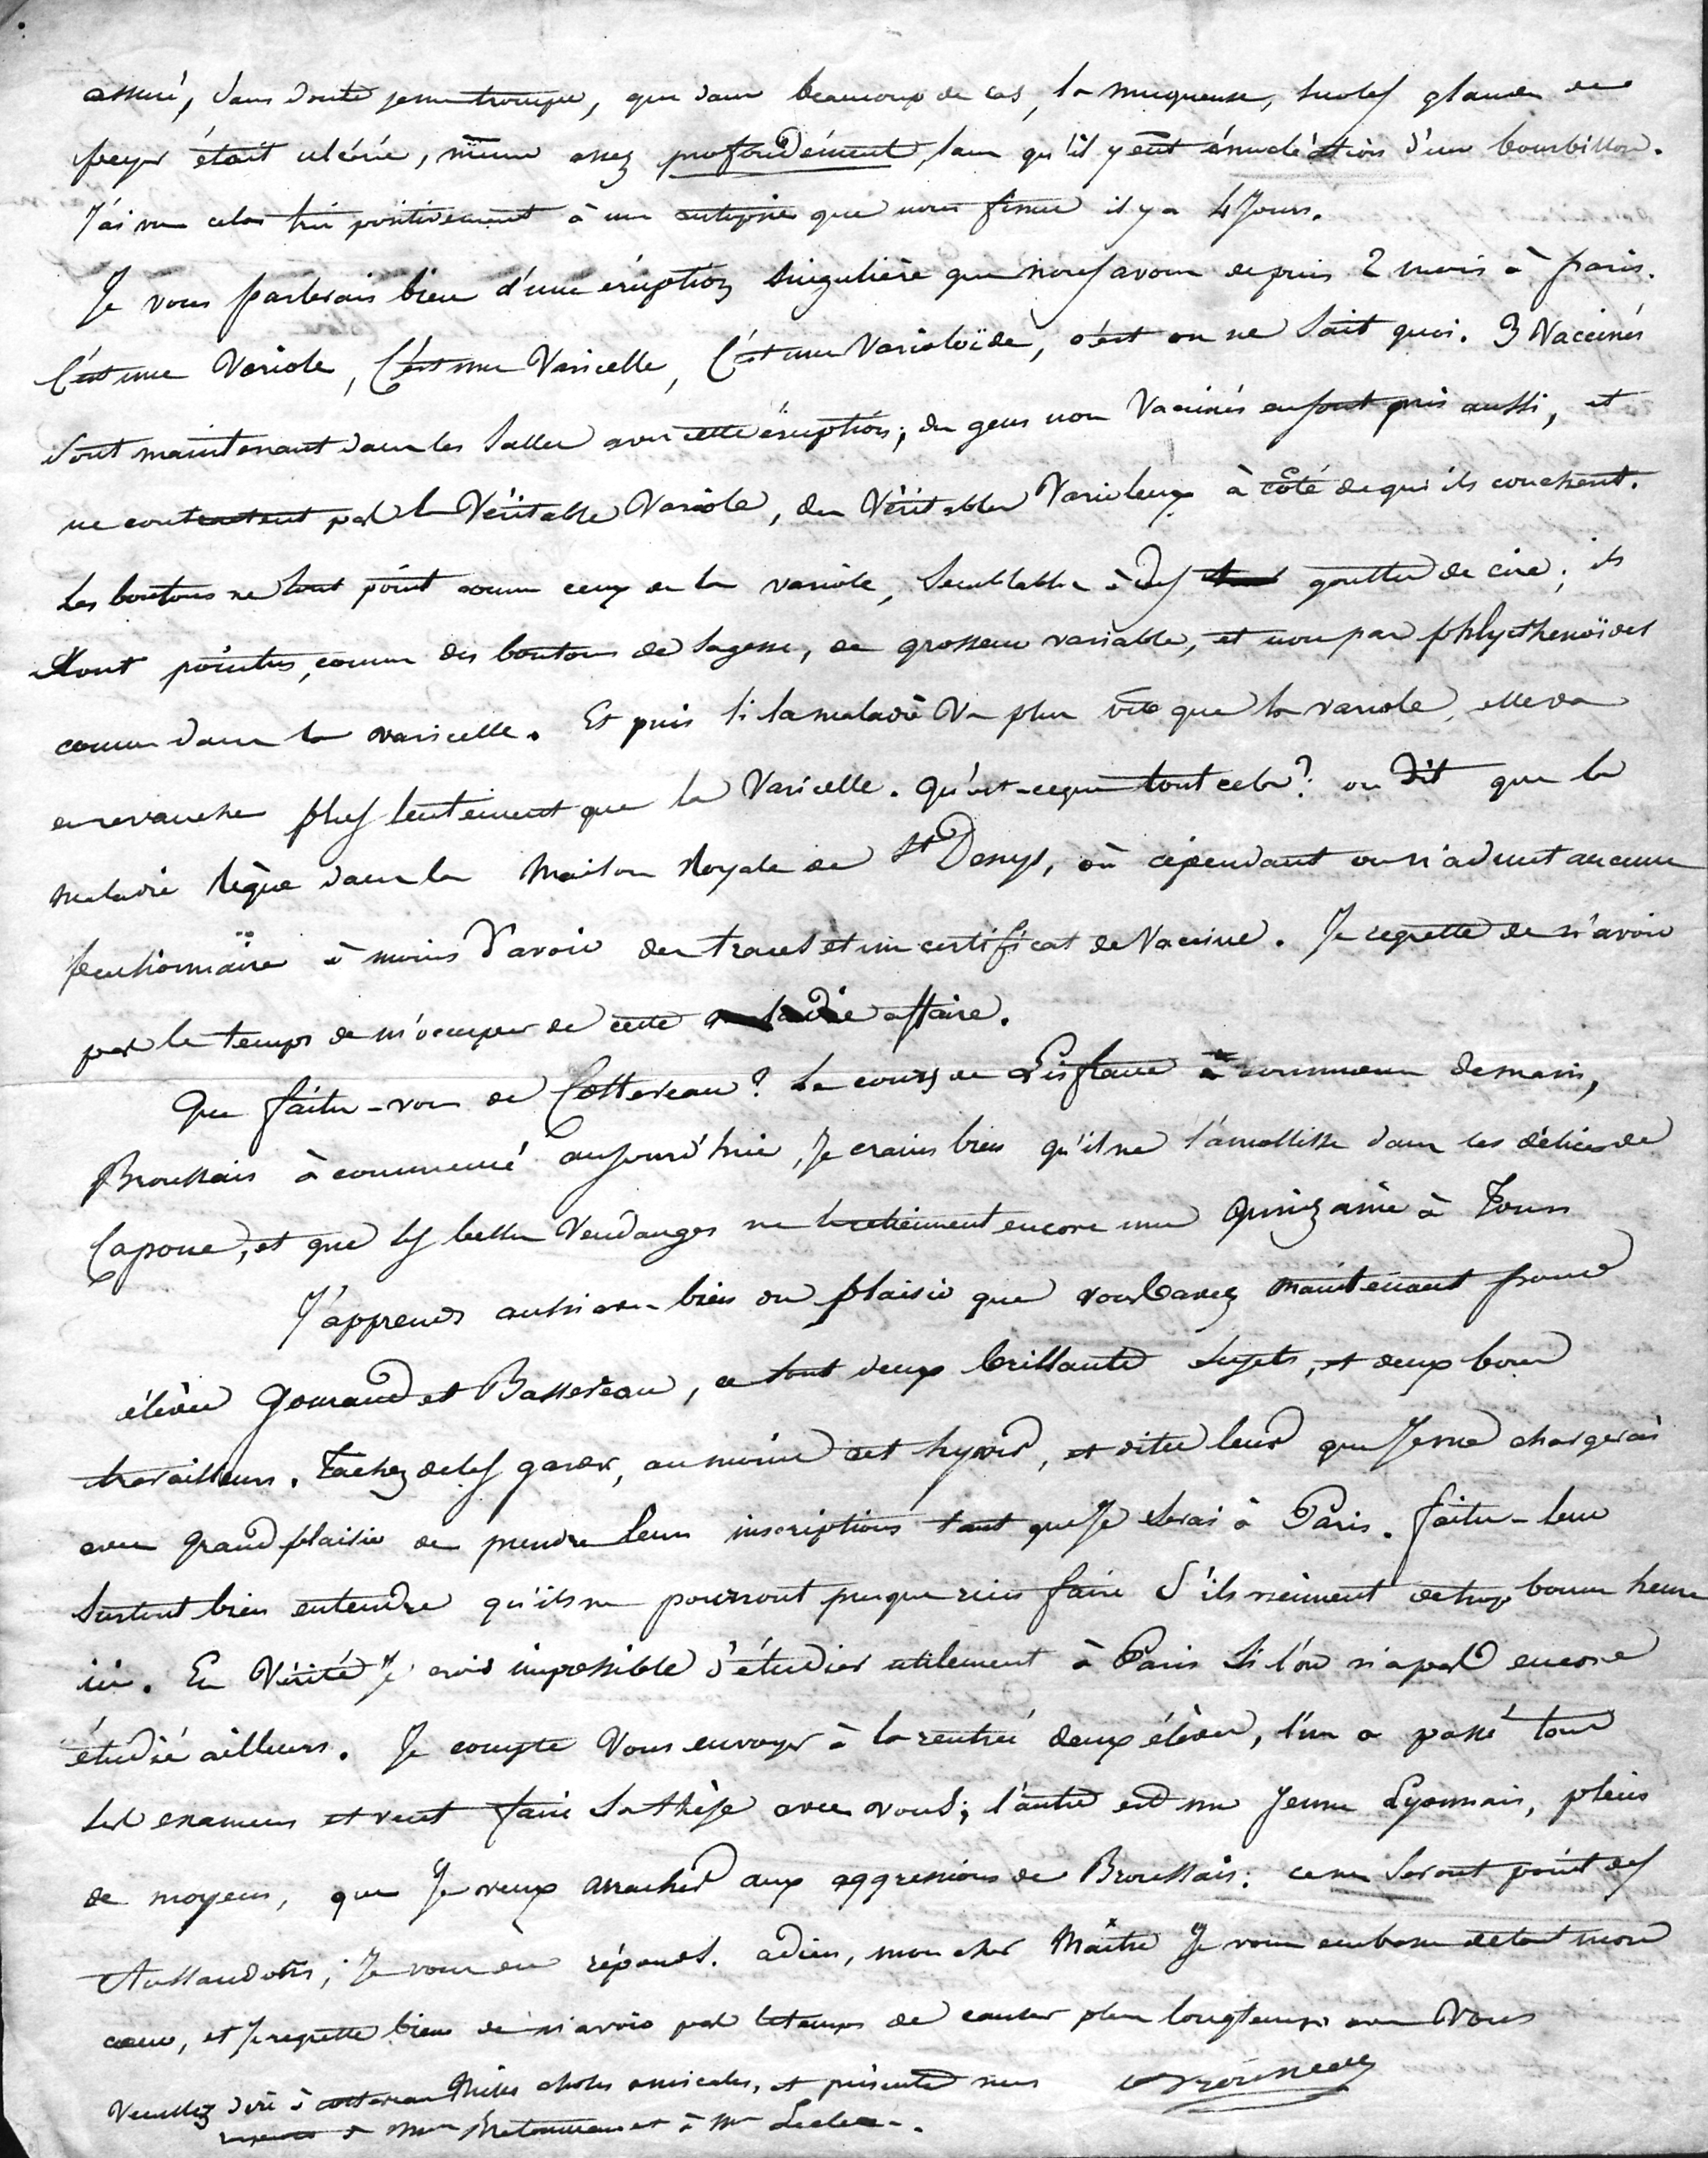 assuré, sans doute je me trompe, que dans beaucoup de cas, la muqueuse, sur les glandes de
peyer était ulcérée, même assez profondément, sans qu'il y eût énucléation d'un bourbillon.
J'ai vu cela très positivement à une autopsie que nous fîmes il y a 4 Jours.
Je vous parlerais bien d'une éruption singulière que nous avons depuis 2 mois à paris.
C'est une Variole, C'est une Varicelle, C'est une Varioloïde, c'est on ne sait quoi. 3 Vaccinés
sont maintenant dans les salles avec cette éruption; des gens non Vaccinés en sont pris aussi, et
ne contractent pas la Véritable Variole, des Véritables Varioleux à côté de qui ils couchent.
Les boutons ne sont point comme ceux de la variole, semblables à des gouttes de cire; ils
sont pointus, comme des boutons de sagesse, de grosseur variable, et non pas phlycthenoïdes
comme dans la varicelle. Et puis si la maladie va plus vite que la variole, elle va
en revanche plus lentement que la Varicelle. Qu'est-ce que tout cela? on dit que la
maladie règne dans la Maison Royale de St Denys, où cependant on n'admet aucune
pensionnaire à moins d'avoir des traces et un certificat de Vaccine. Je regrette de n'avoir
pas le temps de m'occuper de cette maladie affaire.
Que faites-vous de Cottereau? Le cours de Lisfranc a commencé demain,
Broussais à commencé aujourd'hui, Je crains bien qu'il ne s'amollisse dans les délices de
Capoue, et que les belles Vendanges ne le retiennent encore une quinzaine à Tours
J'apprends aussi avec bien du plaisir que vous avez maintenant pour
élèves Gouraud et Bassereau, ce sont deux brillants sujets, et deux bons
travailleurs. Tachez de les garder, au moins cet hyver, et dites leur que Je me chargerai
avec grand plaisir de prendre leurs inscriptions tant que Je serai à Paris. faites-leur
surtout bien entendre qu'ils ne pourront presque rien faire s'ils viennent de trop bonne heure
ici. En Vérité Je crois impossible d'étudier utilement à Paris si l'on n'a pas encore
étudié ailleurs. Je compte Vous envoyer à la rentrée deux élèves, l'un a passé tous
ses examens et veut faire sa thèse avec vous; l'autre est un Jeune Lyonnais, plein
de moyens, que Je veux arracher aux aggressions de Broussais: ce ne seront point des
; Je vous en réponds. adieu, mon cher Maître Je vous embrasse de tout mon
cœur, et Je regrette bien de n'avoir pas le temps de causer plus longtemps avec Vous
Veuillez dire à cottereau Milles choses amicales, et présenter mes
respects à Mme Bretonneau et à Mr Leclerc.